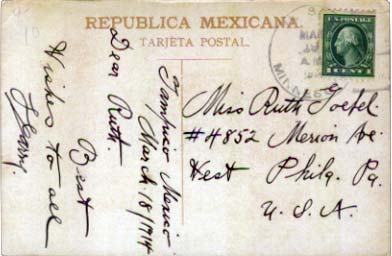 REPUBLICA MEXICANA.
TARJETA POSTAL.
Tampico Mexico
March 18/1914
Dear Ruth.
Best
Wishes to all
Harry.
Miss Ruth Goebel
#4852 Merion Ave.
West Phila. Pa.
U. S. A.
U.S. POSTAGE
1 CENT 1
A.M.